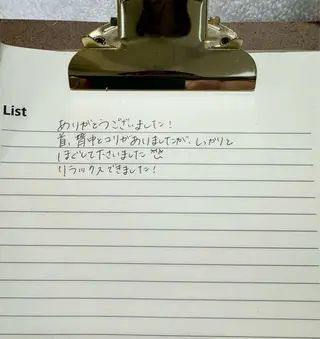 List
ありがとうございました!
首、背中とコリがありましたが、しっかりと
ほぐしてくださいました
リラックスできました!